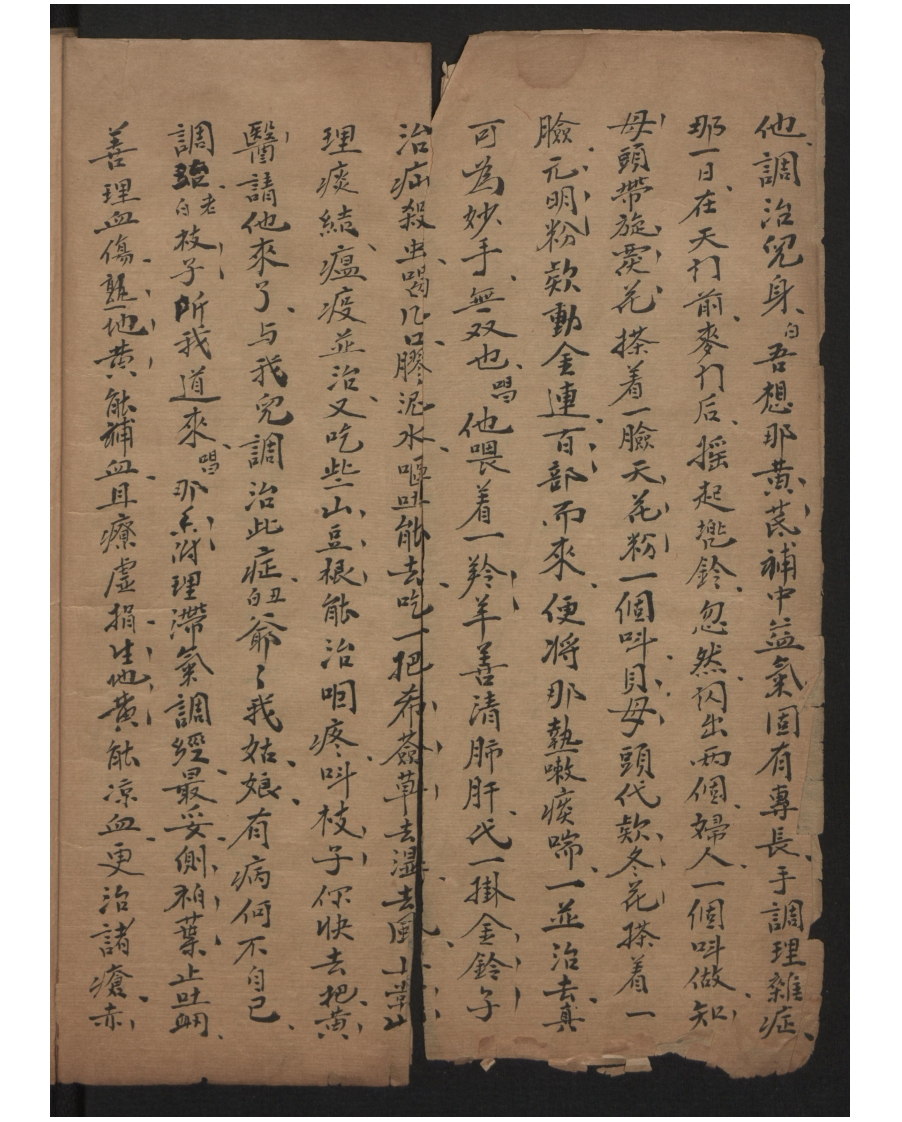 他調治兒身白吾想那黄芪補中益氣固有專長手調理雜症
那一日在天门前麥门后摇起甏鈴忽然闪出兩個婦人一個呌做知
母頭帶旋覆花搽着一臉天花粉一個呌貝母頭代欵冬花搽着一
臉元明粉欵動金連百部而來便將那熱嗽痰喘一並治去真
可為妙手無双也唱他喂着一羚羊善清肺肝代一掛金鈴子
治疝殺虫喝几口膠泥水嘔吐能去吃一把希薟草去湿去風
理痰結瘟疫並治又吃些山豆根能治咽疼呌枝子你快去把黄
醫請他來了与我兒調治此症白丑爺了我姑娘有病何不自己
調治老白枝子所我道來唱那香附理滯氣調經最妥側栢葉止吐衄
善理血傷熟地黄能補血且療虛损生地黄能凉血更治諸瘡赤